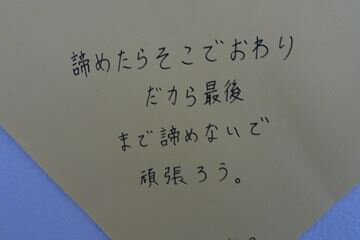 諦めたらそこでおわり
だから最後
まで諦めないで
頑張ろう。